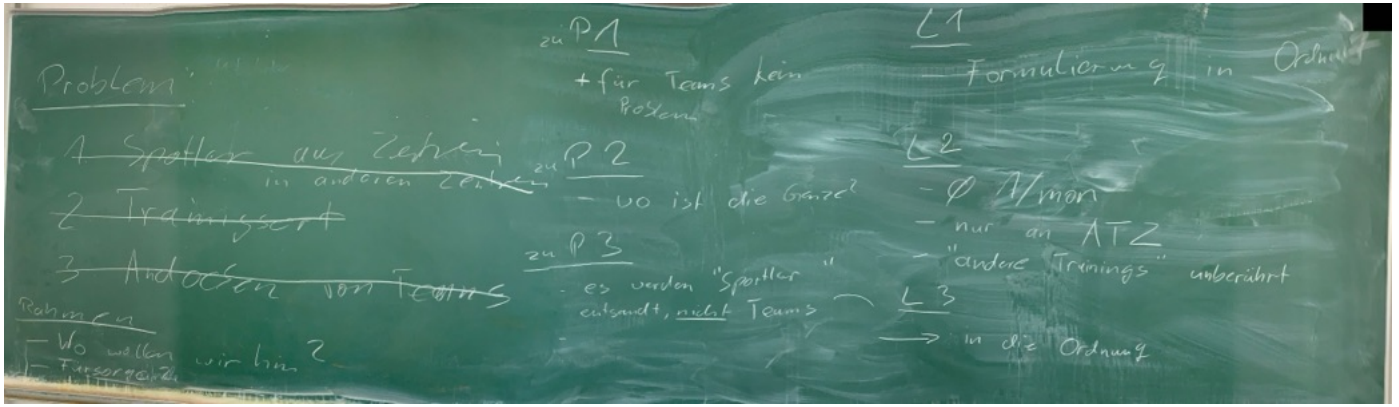 Problem:
1 Spotler aus Zentren
in anderen Zentren
2 Trainigsort
3 Andocken von Teams
Rahmen
- Wo wollen wir hin?
- Fürsorge
zu P1
+ für Teams kein
Problem
zu P2
- wo ist die Grenze?
zu P3
- es werden "Sportler"
entsandt, nicht Teams
L1
- Formulierung in Ordnung
L2
- Ø 1/mon
- nur an ATZ
- "andere Trainings" unberührt
L3
→ in die Ordnung